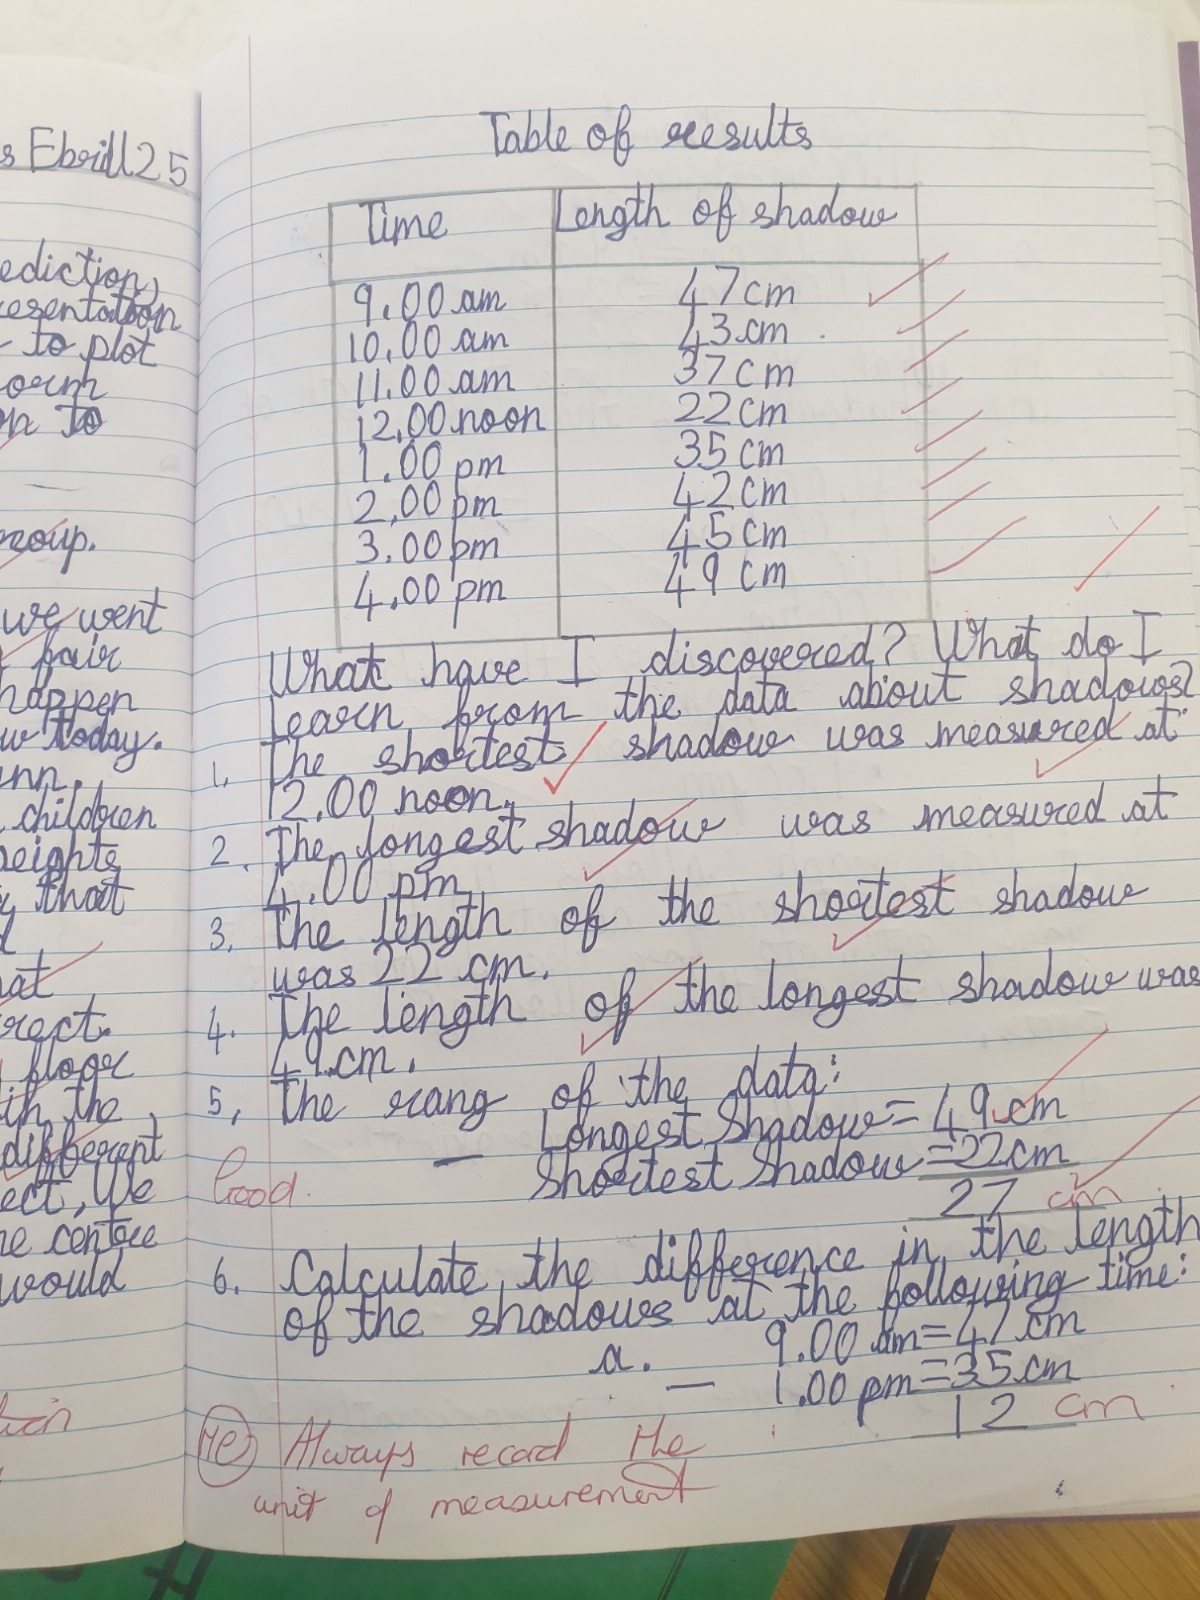 s Ebrill 25
ediction,
resentation
to plot
orm
on to
group.
we went
pair
happen
w today.
children
heights
that
at
rect.
floor
ith the
different
ect, We
he centre
would
Table of results
Time Length of shadow
9.00 am 47cm
10.00 am 43cm
11.00 am 37cm
12.00 noon 22cm
1.00 pm 35cm
2.00 pm 42cm
3.00 pm 45cm
4.00 pm 49cm
What have I discovered? What do I
learn from the data about shadows?
1. The shortest shadow was measured at
12.00 noon.
2. The longest shadow was measured at
4.00 pm
3. The length of the shortest shadow
was 22 cm.
4. The length of the longest shadow was
49cm.
5. The rang of the data:
Longest Shadow = 49cm
Good. — Shortest Shadow = 22cm
27 cm
6. Calculate the difference in the length
of the shadows at the following time:
a. 9.00 am = 47cm
— 1.00 pm = 35cm
12 cm
Always record the
unit of measurement